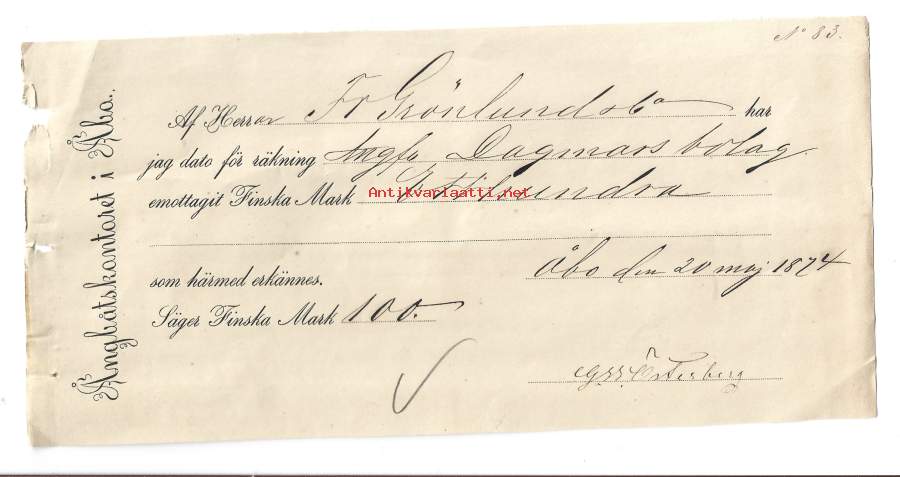 No 83.
Ångbåtskontoret i Åbo.
Af Herrar Fr Grönlund & Co har
jag dato för räkning Ångfa, Dagmars bolag
emottagit Finska Mark Etthundra
Antikvariaatti.net
som härmed erkännes.
Åbo den 20 maj 1874
Säger Finska Mark 100.
Österberg